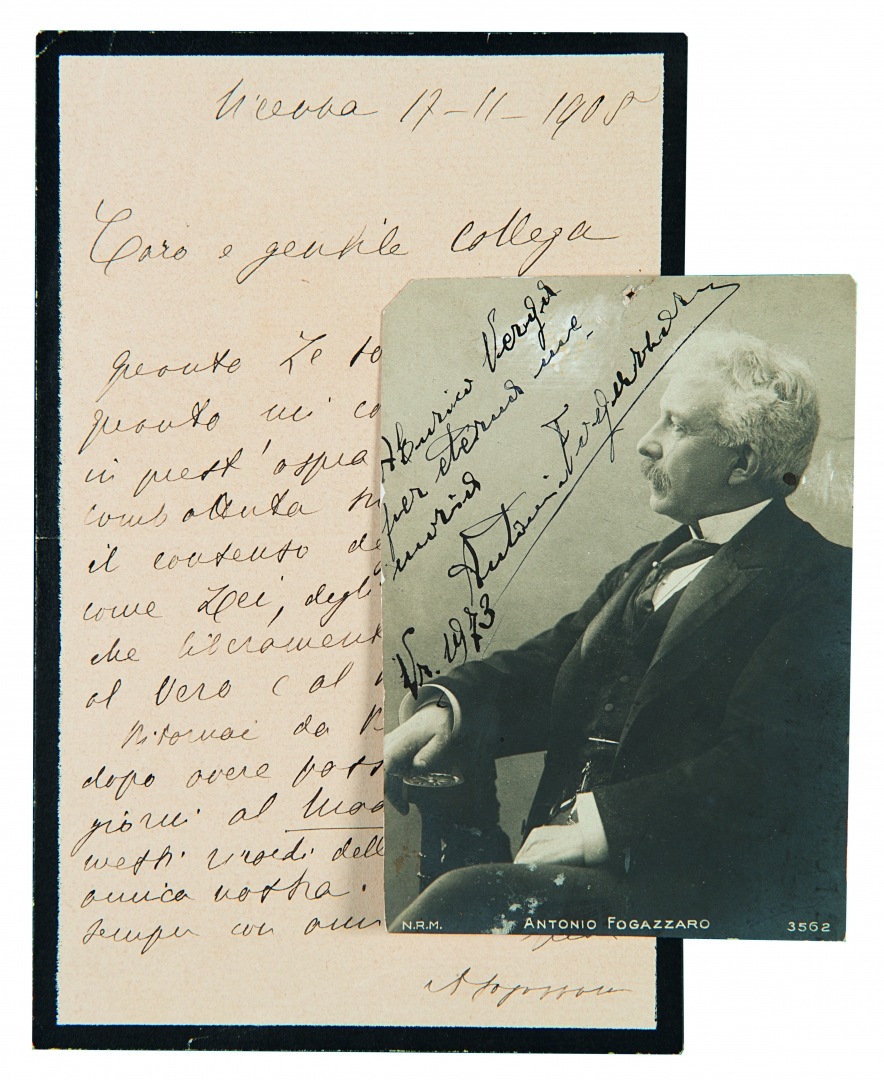 Vicenza 17-11-1908
Caro e gentile collega
quanto Le so
quanto mi co
in quest'aspra
combattuta
il consenso de
come Lei, degli
che liberament
al Vero (al
Ritornai da
dopo avere pass
giorni al Mod
mesti ricordi dell
amica nostra.
Sempre con am
A Fogazzaro
A Enrico Verga
per eterna me-
moria
Antonio Fogazzaro
Vi. 1973
N.R.M.
ANTONIO FOGAZZARO
3562